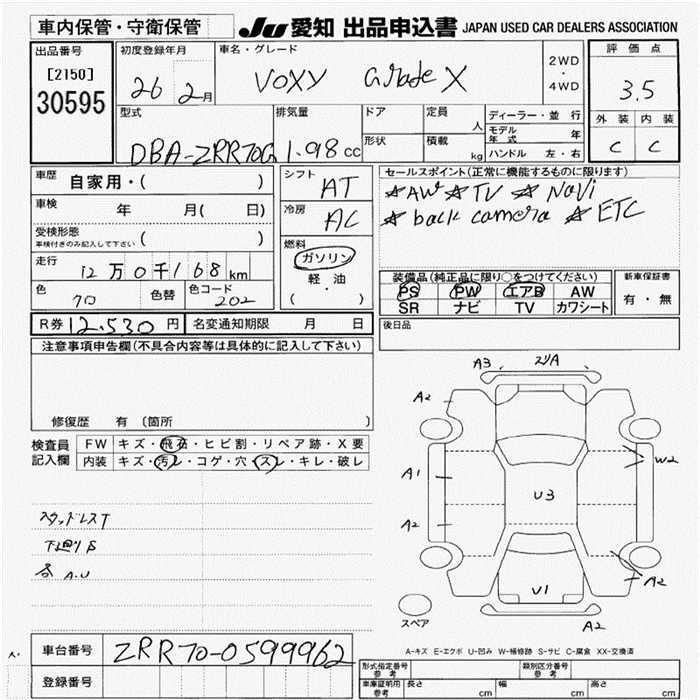 車内保管・守衛保管
JU 愛知 出品申込書 JAPAN USED CAR DEALERS ASSOCIATION
出品番号
[2150]
30595
初度登録年月
26 2月
車名・グレード
VOXY Grade X
2WD
・
4WD
評価点
3.5
外装 内装
C C
型式
DBA-ZRR70G
排気量
1.98 cc
ドア
形状
定員
人
積載
kg
ディーラー・並行
モデル 年
年式
ハンドル 左・右
車歴 自家用・( )
車検 年 月( 日)
受検形態
車検付きのみ記入して下さい ( )
走行 12万0千168 km
色 70 色替 色コード 202
シフト
AT
冷房
AC
燃料
ガソリン
軽・油
( )
セールスポイント(正常に機能するものに限ります)
☆AW ☆TV ☆Navi
☆back camera ☆ETC
装備品(純正品に限り○をつけてください)
PS PW エアB AW
SR ナビ TV カワシート
新車保証書
有・無
R券 12.530 円 名変通知期限 月 日
後日品
注意事項申告欄(不具合内容等は具体的に記入して下さい)
修復歴 有 〔箇所 〕
検査員
記入欄
FW キズ・飛石・ヒビ割・リペア跡・X要
内装 キズ・汚レ・コゲ・穴・スレ・キレ・破レ
スタッドレスT
下廻りS
A.U
A3 スリA
A2
A1
A2
W2
U3
A2
U1
A2
スペア
A-キズ E-エクボ U-凹み W-補修跡 S-サビ C-腐食 XX-交換済
車台番号 ZRR70-0599962
登録番号
型式指定番号
参考
類別区分番号
参考
車庫証明用
参考
長さ cm 幅 cm 高さ cm